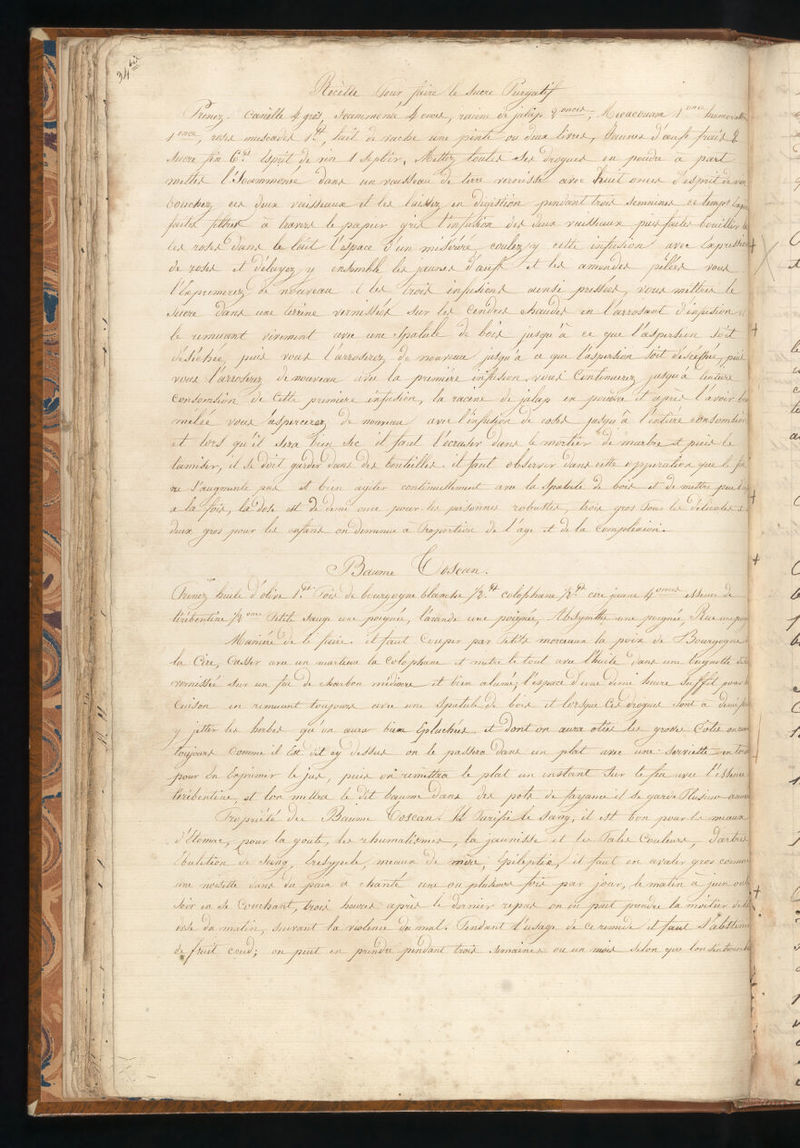 34 bis
Recette pour faire le Sucre Purgatif
Prenez. Canelle 4 gros, Scammonée 4 onces, racine de jalap 2 onces, 1 once
1 once, roses muscades 1 lt, lait de vache une pinte ou deux livres, Jaunes d'œufs frais 2
Sucre fin 6 lt Esprit de vin 1 Septier, Mettez toutes Ses drogues en poudre a part
mettez l'Scammonée dans un vaisseau de terre vernissé avec huit onces d'esprit de vin
bouchez ces deux vaisseaux et les laissez en digestion pendant trois semaines ce temps
faites filtrer a travers le papier gris l'infusion des deux vaisseaux puis faites bouillir
les roses dans le lait l'espace d'un miséréré, coulez y cette infusion avec Expression
de roses et délayez y ensemble les jaunes d'œufs et les amandes pillées vous
l'Exprimerez de nouveau & les trois infusions ainsi pressées, vous mettrez le
Sucre dans une térrine vernissée sur les Cendres chaudes en l'arrosant d'infusion
le remuant vivement avec une Spatule de bois jusqu'à ce que l'aspersion soit
deséchée, puis vous l'arroserez de nouveau jusqu'à ce que l'aspersion soit deséchée, puis
vous l'arroserez de nouveau avec la première infusion, vous Continuerez jusqu'a
Consomsion de Cette premiere infusion, la racine de jalap en poudre et apres l'avoir
mêlée vous aspercerez de nouveau avec l'infusion de roses jusqu'à l'entière consomtion
et lors qu'il sera bien sec il faut l'écraser dans le mortier de marbre et puis le
tamiser, il se doit garder dans des bouteilles. il faut observer dans cette opperation que le feu
ne s'augmente pas et bien agiter continuellement avec la Spatule de bois et de mettre peu
a la fois, la dose est de demi once pour les personnes robustes, trois gros pour les délicates
deux gros pour les enfans on diminue a Proportion de l'age et de la Complexion.
Baume Toscan.
Prenez huile d'olive 1 lt Poix de bourgogne blanche 1/2 lt colophane 1/2 lt cire jaune 4 onces essence de
térébentine 1/2 once Petite Sauge une poignée, lavande une poignée, Absynthe une poignée, Rue une
Manière de le faire. il faut Couper par Petits morceaux la poix de Bourgogne
la Cire, Casser avec un marteau la Colophane et mettre le tout avec l'huile dans une
vernissée sur un feu de charbon médiocre et bien alumé; l'espace d'une demi heure Suffit pour
Cuison en remuant toujours avec une Spatule de bois et lorsque Ces drogues sont a demi
y jetter les herbes qu'on aura bien Epluchées et dont on aura otées les grosses Cotes
toujours Comme il Est dit cy dessus on le passera dans un plat avec une Serviette
pour En Exprimer le jus, puis on remettra le plat un instant Sur le feu avec l'essence
térébentine, et l'on mettra le dit baume dans des pots de fayance il se garde Plusieurs
Propriété du Baume Toscan. Il Purifie le Sang, il est bon pour les maux
d'Estomac, pour la goute, les rhumatismes, la jaunisse et les Pales Couleurs, Dartres
Ebulution de Sang, Erésypele, meaux de mère, Epileptie, il faut en avaler gros comme
une noisette dans du pain a chanté une ou plusieurs fois par jour, le matin a jeun ou
Soir en Se Couchant, trois heures après le Dernier repas on en peut prendre la moitier de
dose du matin, suivant la violence du mal. Pendant l'usage de Ce remède il faut S'abstenir
de fruit crud; on peut en prendre pendant trois Semaines ou un mois Selon que l'on